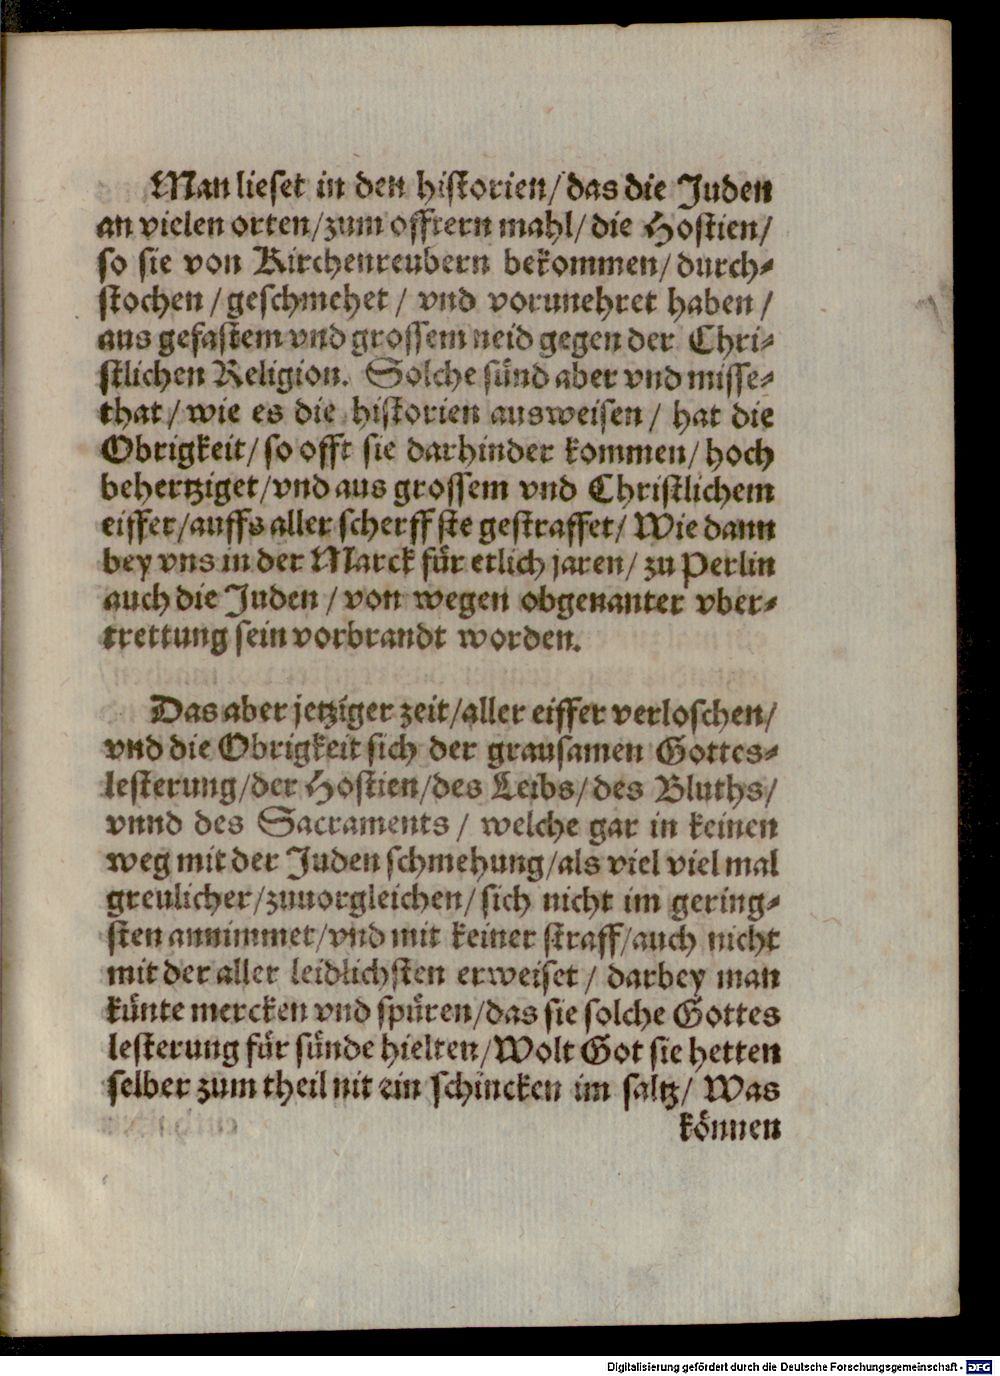 Man lieset in den historien/ das die Juden
an vielen orten/zum offtern mahl/ die Hostien/
so sie von Kirchenreubern bekommen/ durch-
stochen / geschmehet / vnd vorunehret haben /
aus gefastem vnd grossem neid gegen der Chri-
stlichen Religion. Solche sünd aber vnd misse-
that / wie es die historien ausweisen / hat die
Obrigkeit/ so offt sie darhinder kommen/ hoch
behertziget/vnd aus grossem vnd Christlichem
eiffer/auffs aller scherffste gestraffet/ Wie dann
bey vns in der Marck für etlich jaren/ zu Perlin
auch die Juden / von wegen obgenanter vber-
trettung sein vorbrandt worden.
Das aber jetziger zeit/aller eiffer verloschen/
vnd die Obrigkeit sich der grausamen Gottes-
lesterung/der Hostien/des Leibs/des Bluths/
vnnd des Sacraments / welche gar in keinen
weg mit der Juden schmehung/als viel viel mal
greulicher/zuuorgleichen/ sich nicht im gering-
sten annimmet/vnd mit keiner straff/auch nicht
mit der aller leidlichsten erweiset / darbey man
künte mercken vnd spüren/das sie solche Gottes
lesterung für sünde hielten/Wolt Got sie hetten
selber zum theil nit ein schincken im saltz/ Was
können
Digitalisierung gefördert durch die Deutsche Forschungsgemeinschaft - DFG